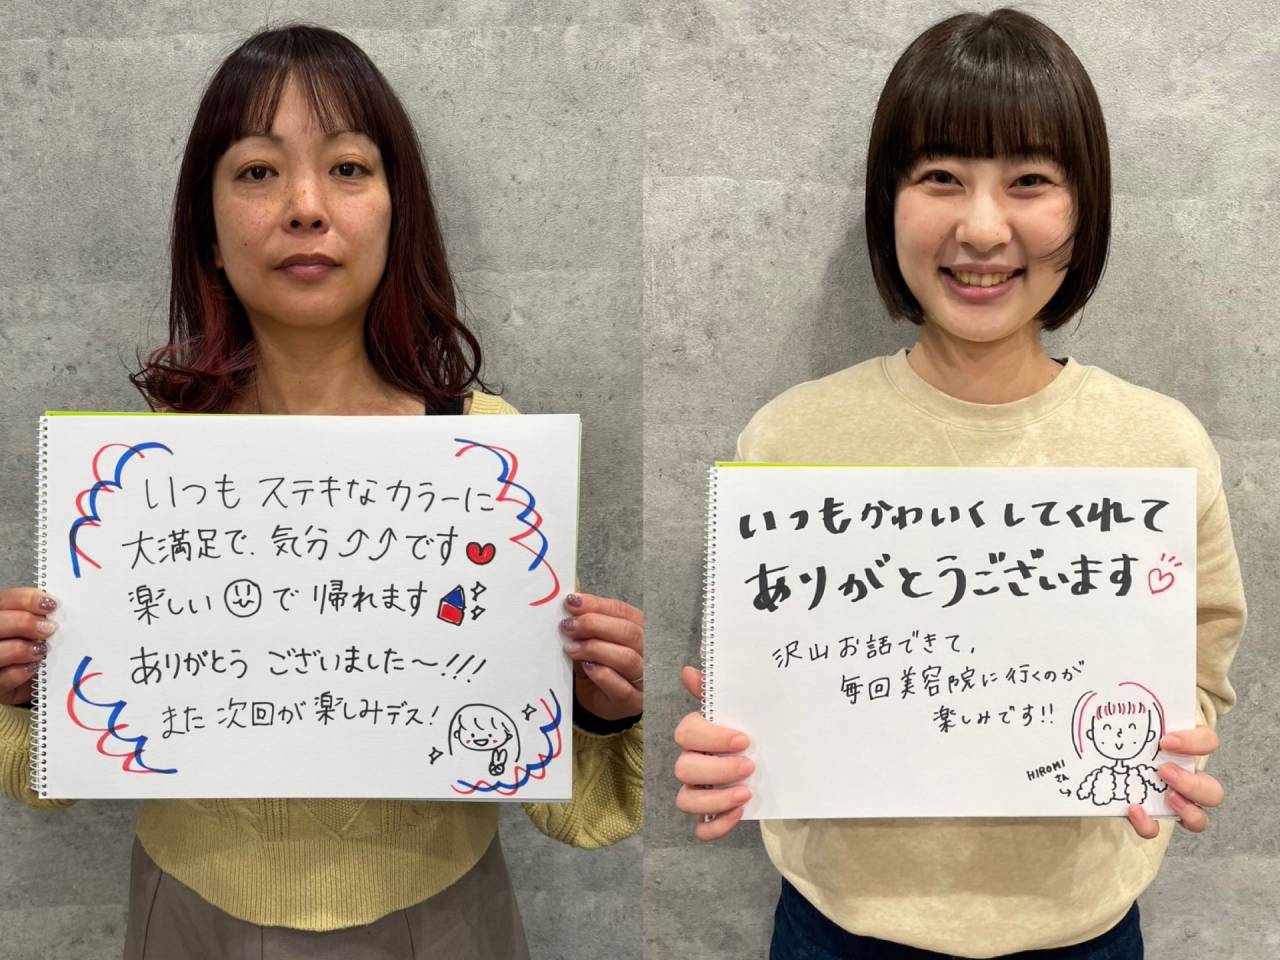 いつも ステキな カラーに
大満足で、気分⤴⤴です
楽しい で 帰れます
ありがとう ございました〜!!!
また 次回が 楽しみデス!
いつもかわいくしてくれて
ありがとうございます
沢山お話できて、
毎回美容院に行くのが
楽しみです!!
HIROMI
さん